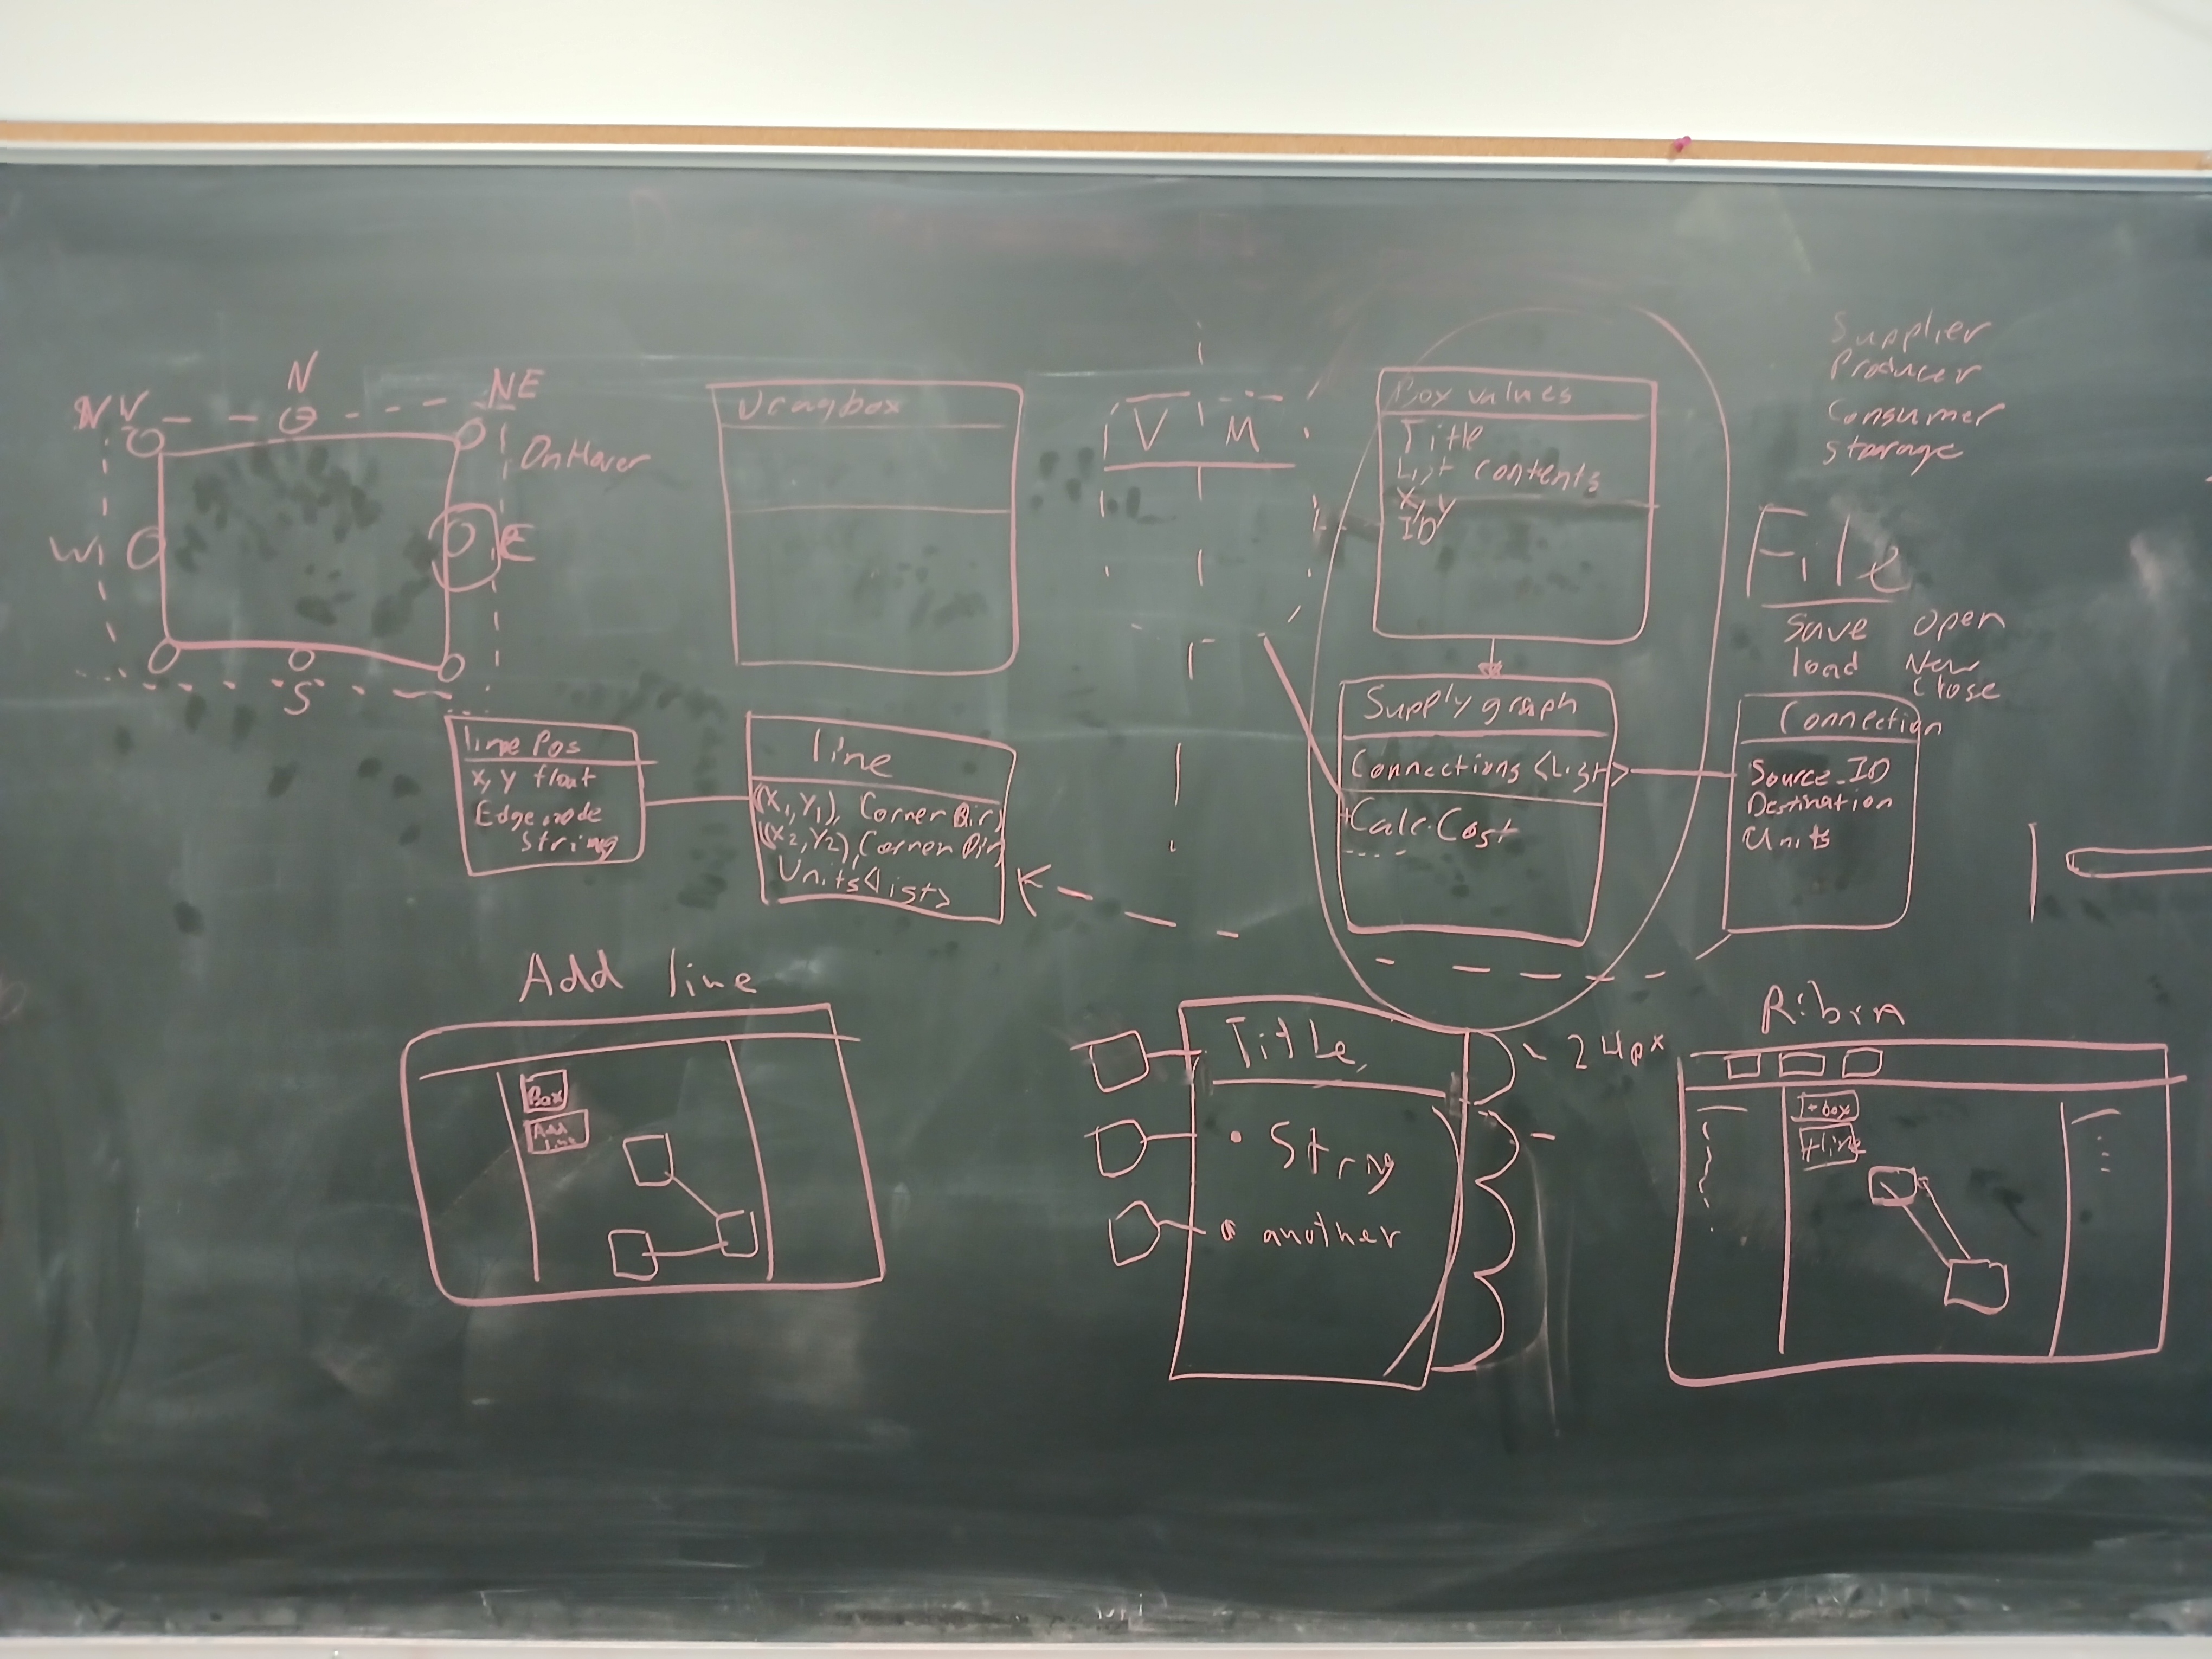 N
NW
NE
OnHover
W
E
S
Dragbox
V M
Box values
Title
List contents
X, Y
ID
Supplier
Producer
Consumer
Storage
File
Save Open
load New
Close
line Pos
X, Y float
Edge node
String
line
(X1, Y1), Corner Dir
(X2, Y2), Corner Dir
Units<list>
Supply graph
Connections <List>
+Calc.Cost
Connection
Source_ID
Destination
Units
Add line
Box
Add
line
Title
24px
• String
• another
Ribrn
+box
+line